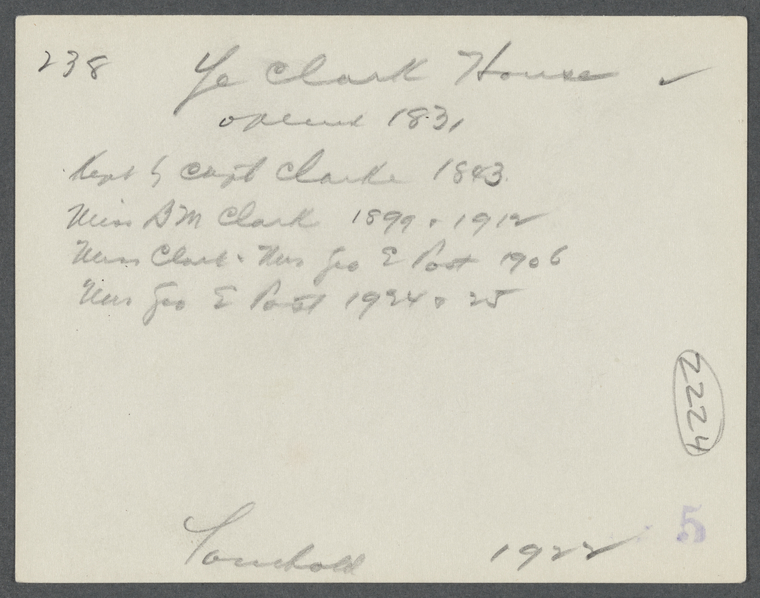 238 Ye Clark House ✓
opened 1831
Kept by Capt Clarke 1843.
Miss B M Clark 1899 & 1912
Miss Clark & Mrs Geo E Post 1906
Mrs Geo E Post 1924 & 25
2224
5
1922